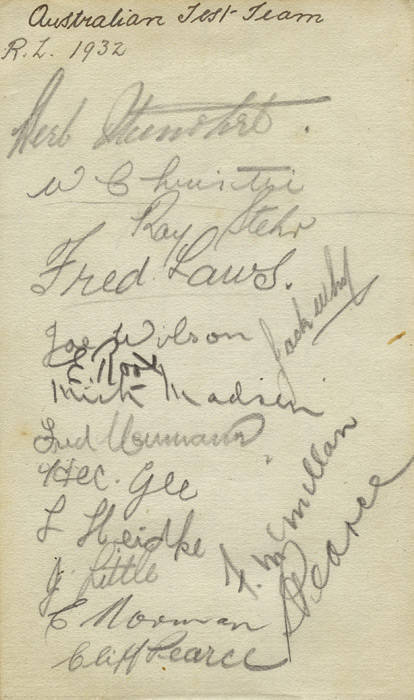 Australian Test Team
R.L. 1932
Herb Steinohrt.
W Christie
Ray Stehr
Fred Laws.
Joe Wilson
Jack Why
E. Root
Mick Madsen
Fred Neumann
Hec. Gee
L Heidke
J. Little
F. McMillan
S Pearce
E Norman
Cliff Pearce